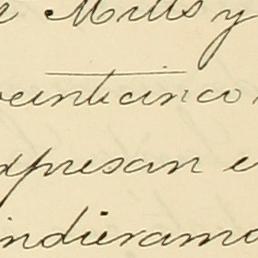 Mills y
veinticinco
expresan e
indieramo